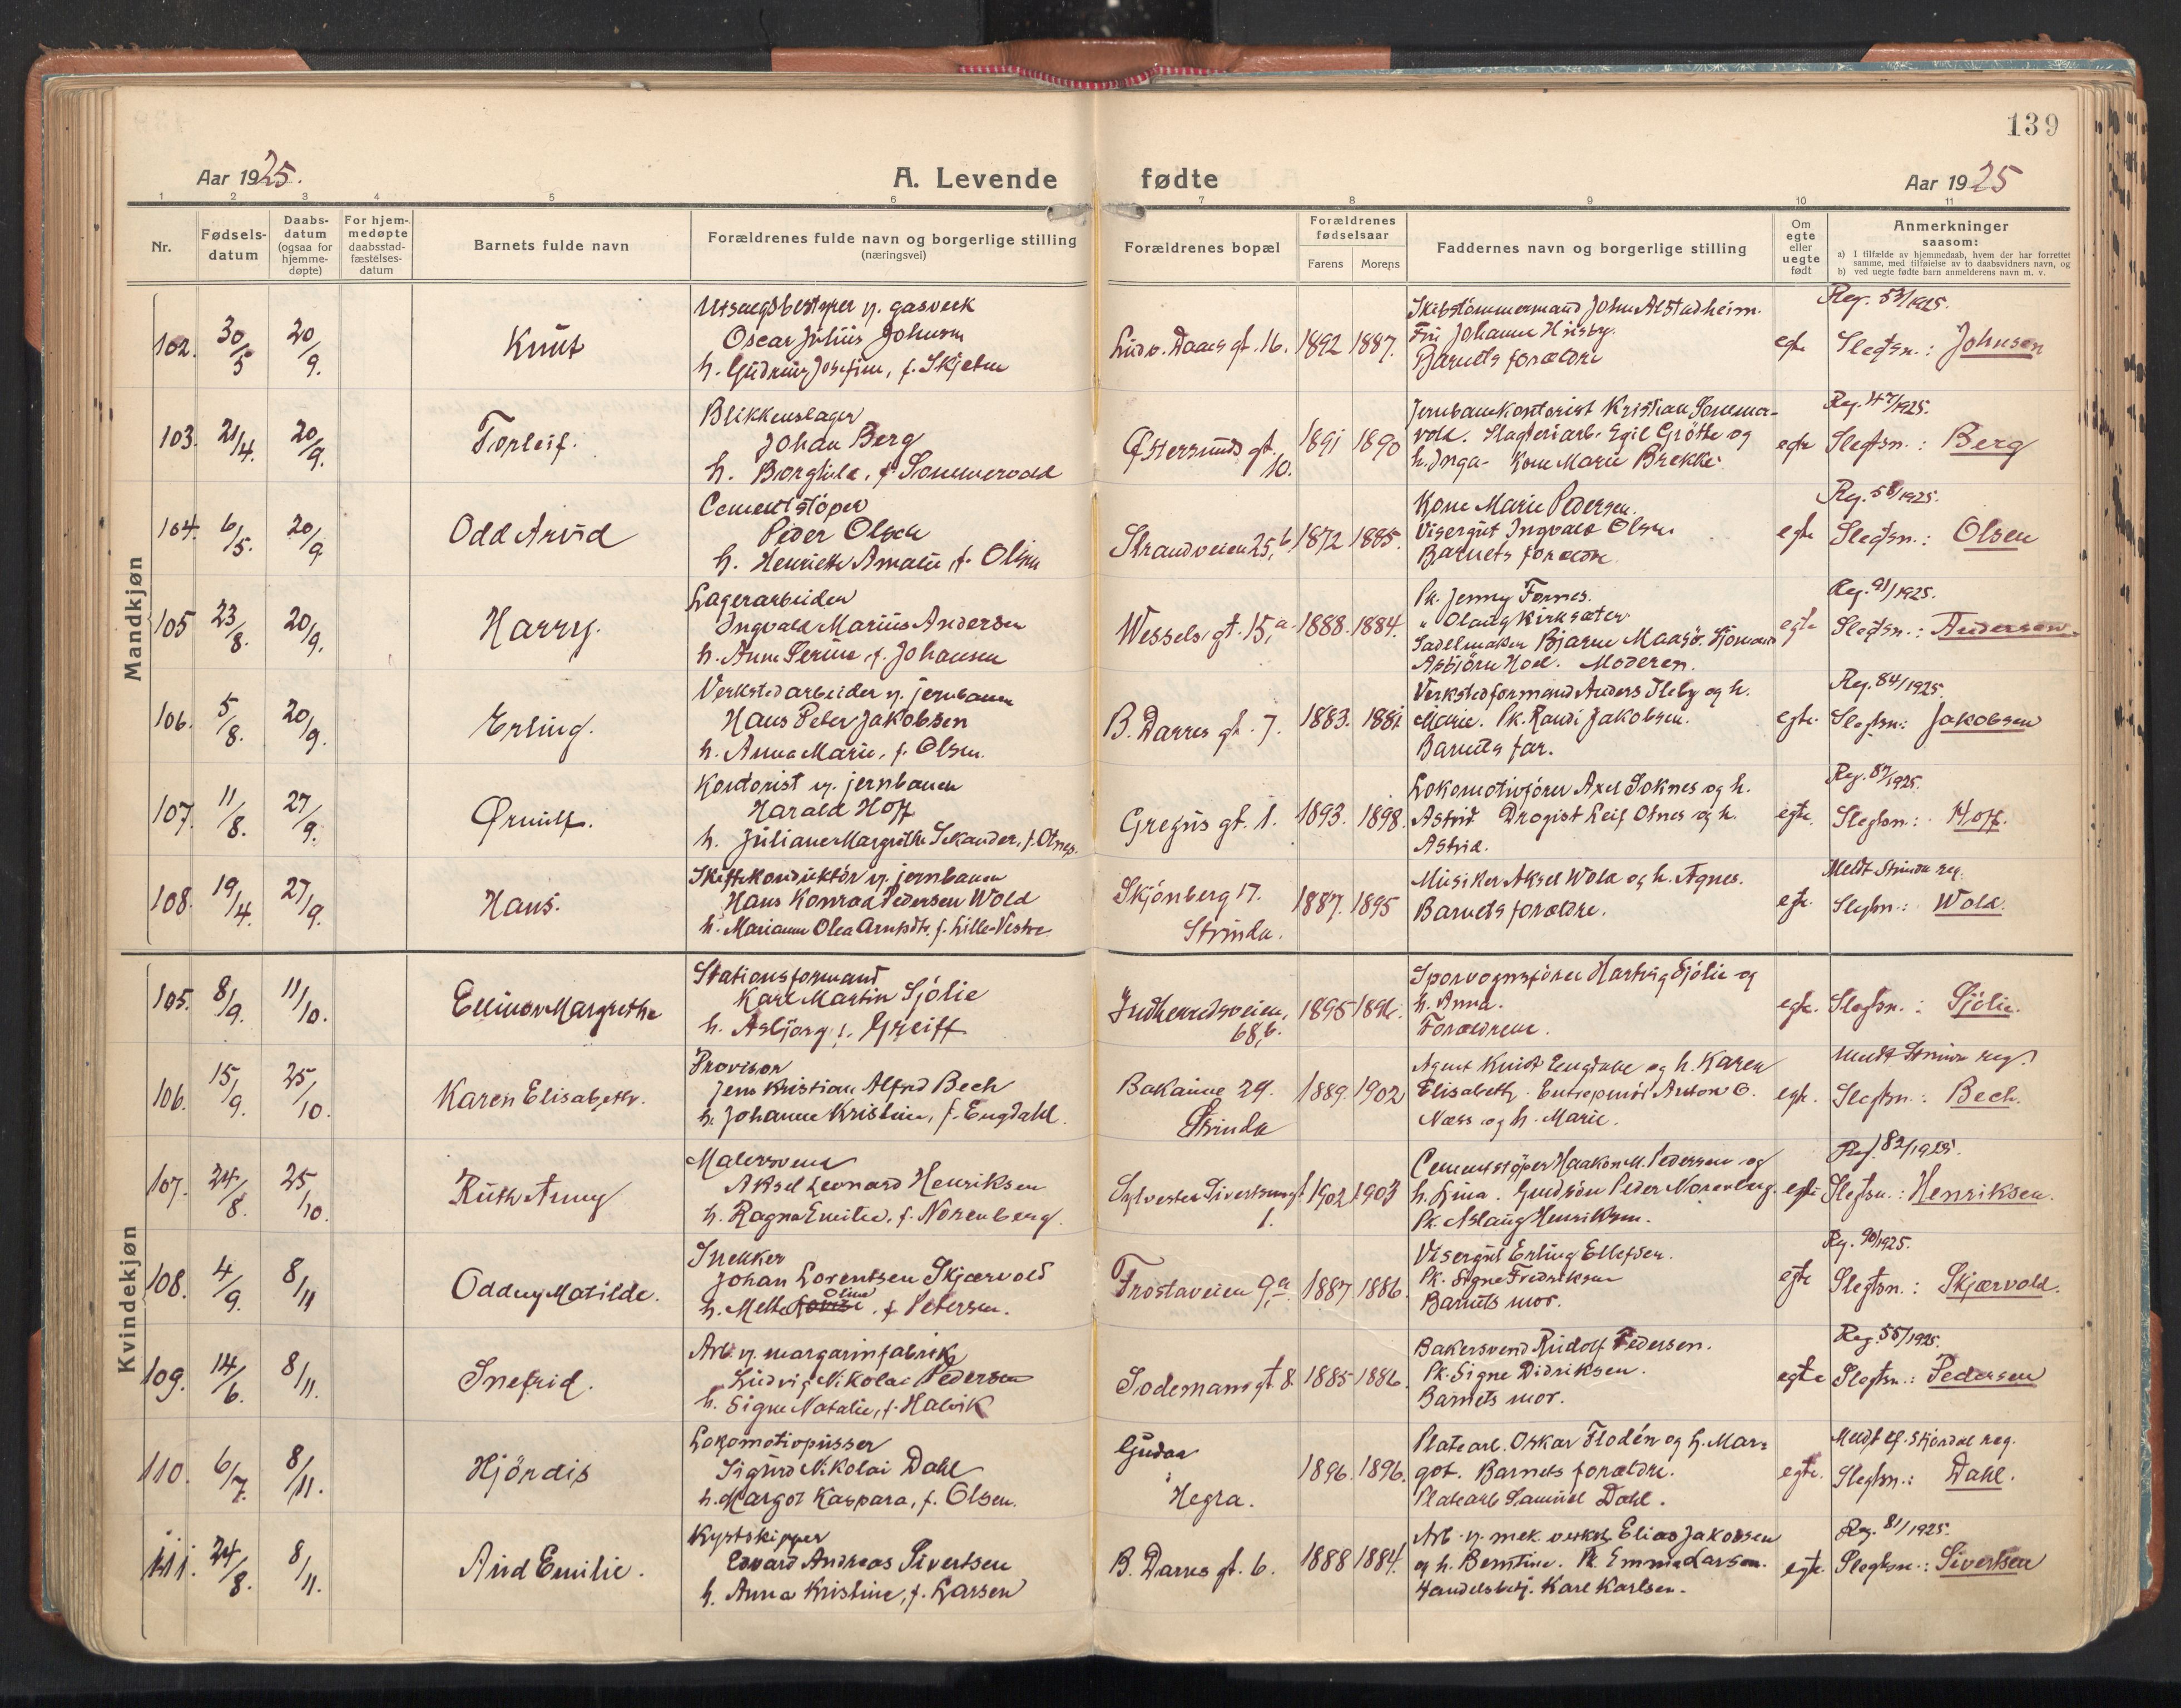 139
Aar 1925.
A. Levende fødte
Aar 1925
1 2 3 4 5 6 7 8 9 10 11
Nr.
Fødsels-
datum
Daabs-
datum
(ogsaa for
hjemme-
døpte)
For hjem-
medøpte
daabsstad-
fæstelses-
datum
Barnets fulde navn
Forældrenes fulde navn og borgerlige stilling
(næringsvei)
Forældrenes bopæl
Forældrenes
fødselsaar
Farens Morens
Faddernes navn og borgerlige stilling
Om
egte
eller
uegte
født
Anmerkninger
saasom:
a) I tilfælde av hjemmedaab, hvem der har forrettet
samme, med tilføielse av to daabsvidners navn, og
b) ved uegte fødte barn anmelderens navn m. v.
Mandkjøn
102. 30/5 20/9. Knut
Utsalgsbestyrer v. gasverk
Oscar Julius Johnsen
h. Gudrun Josefine, f. Skjelne
Ludv. Daaes gt. 16. 1892 1887.
Skibstömmermand John Alstadheim.
Fru Johanne Husby.
Barnets forældre
egte
Reg. 53/1925.
Slegtsn.: Johnsen
103. 21/4. 20/9. Torleif.
Blikkenslager
Johan Berg
h. Borghild, f. Sommervold
Østersunds gt.
10.
1891 1890
Jernbanekontorist Kristian Sommer-
vold. Slagteriarb. Egil Grötte og
h. Inga. Kone Marie Brekke.
egte
Reg. 47/1925.
Slegtsn.: Berg
104. 6/5. 20/9 Odd Arvid
Cementstöper
Peder Olsen
h. Henriette Amalie, f. Olsen
Strandveien 25,b 1872 1885.
Kone Marie Pedersen.
Visergut Ingvald Olsen
Barnets forældre
egte
Reg. 58/1925.
Slegtsn.: Olsen
105 23/8. 20/9. Harry.
Lagerarbeider
Ingvald Marius Andersen
h. Anne Serine, f. Johansen
Wessels gt. 15,a 1888. 1884.
Pk. Jenny Fornes.
" Olaug Kirksæter
Sadelmaker Bjarne Maasö. Sjömand
Asbjörn Hoel. Moderen.
egte
Reg. 91/1925.
Slegtsn.: Andersen.
106. 5/8. 20/9. Erling.
Verkstedarbeider v. jernbanen
Hans Peter Jakobsen
h. Anna Marie, f. Olsen.
B. Darres gt. 7. 1883. 1881.
Verkstedformand Anders Ileby og h.
Marie. Pk. Randi Jakobsen.
Barnets far.
egte.
Reg. 84/1925.
Slegtsn.: Jakobsen
107. 11/8. 27/9. Ørnulf.
Kontorist v. jernbanen
Harald Hoff
h. Juliane Margrethe Sekander, f. Otnes.
Gregus gt. 1. 1893. 1898.
Lokomotivförer Axel Soknes og h.
Astrid. Drogist Leif Otnes og h.
Astrid.
egte.
Reg. 87/1925.
Slegtsn.: Hoff.
108. 19/4. 27/9. Hans.
Skiftekonduktör v. jernbanen
Hans Konrad Pedersen Wold
h. Marianne Olea Arntsdtr. f. Lille-Vestre
Skjönberg 17.
Strinda.
1887. 1895
Musiker Aksel Wold og h. Agnes.
Barnets forældre.
egte.
Meldt Strinda reg.
Slegtsn.: Wold.
Kvindekjøn
105. 8/9. 11/10. Ellinor Margrethe
Stationsformand
Karl Martin Sjölie
h. Asbjørg f. Greiff
Indherredsveien,
68,b.
1895 1896.
Sporvognsförer Hartvig Sjölie og
h. Anna.
Forældrene.
egte.
Slegtsn.: Sjölie.
106. 15/9. 25/10. Karen Elisabeth.
Provisor
Jens Kristian Alfred Bech
h. Johanne Kristine, f. Engdahl.
Bakaune 29.
Strinda
1889. 1902
Agent Knut Engdahl og h. Karen
Elisabeth. Entrepenör Anton O.
Næss og h. Marie.
egte.
Meldt Strinda reg.
Slegtsn.: Bech.
107. 24/8. 25/10. Ruth Anny
Malersvend
Aksel Leonard Henriksen
h. Ragna Emilie, f. Norenberg.
Sylvester Sivertsens gt.
1.
1902 1903
Cementstöper Haakon M. Pedersen og
h. Lina. Peder Norenberg.
Pk. Aslaug Henriksen.
egte
Reg. 82/1925.
Slegtsn.: Henriksen.
108. 4/9. 8/11 Oddny Matilde.
Snekker
Johan Lorentsen Skjærvold
h. Mette Oline, f. Petersen.
Frostaveien 9,a. 1887 1886.
Visergut Erling Ellefsen.
Pk. Signe Fredriksen
Barnets mor.
egte
Reg. 90/1925.
Slegtsn.: Skjærvold.
109. 14/6. 8/11. Snefrid.
Arb. v. margarinfabrik
Ludvig Nikolai Pedersen
h. Signe Natalie, f. Halvik
Sodemans gt. 8. 1885 1886.
Bakersvend Rudolf Pedersen.
Pk. Signe Didriksen.
Barnets mor.
egte
Reg. 55/1925.
Slegtsn.: Pedersen
110. 6/7. 8/11. Hjördis
Lokomotivpusser
Sigurd Nikolai Dahl
h. Margot Kaspara, f. Olsen.
Gudaa
Hegra.
1896. 1896.
Platearb. Oskar Flodén og h. Mar-
got. Barnets forældre.
Platearb. Samuel Dahl.
egte.
Meldt Stjördal reg.
Slegtsn.: Dahl.
111. 24/8. 8/11. Aud Emilie.
Kystskipper
Edvard Andreas Sivertsen
h. Anna Kristine, f. Larsen
B. Darres gt. 6. 1888 1884.
Arb. v. mek. verksted Elias Jakobsen
og h. Berntine. Pk. Emma Larsen.
Handelsbetj. Karl Karlsen.
egte.
Reg. 81/1925.
Slegtsn.: Sivertsen